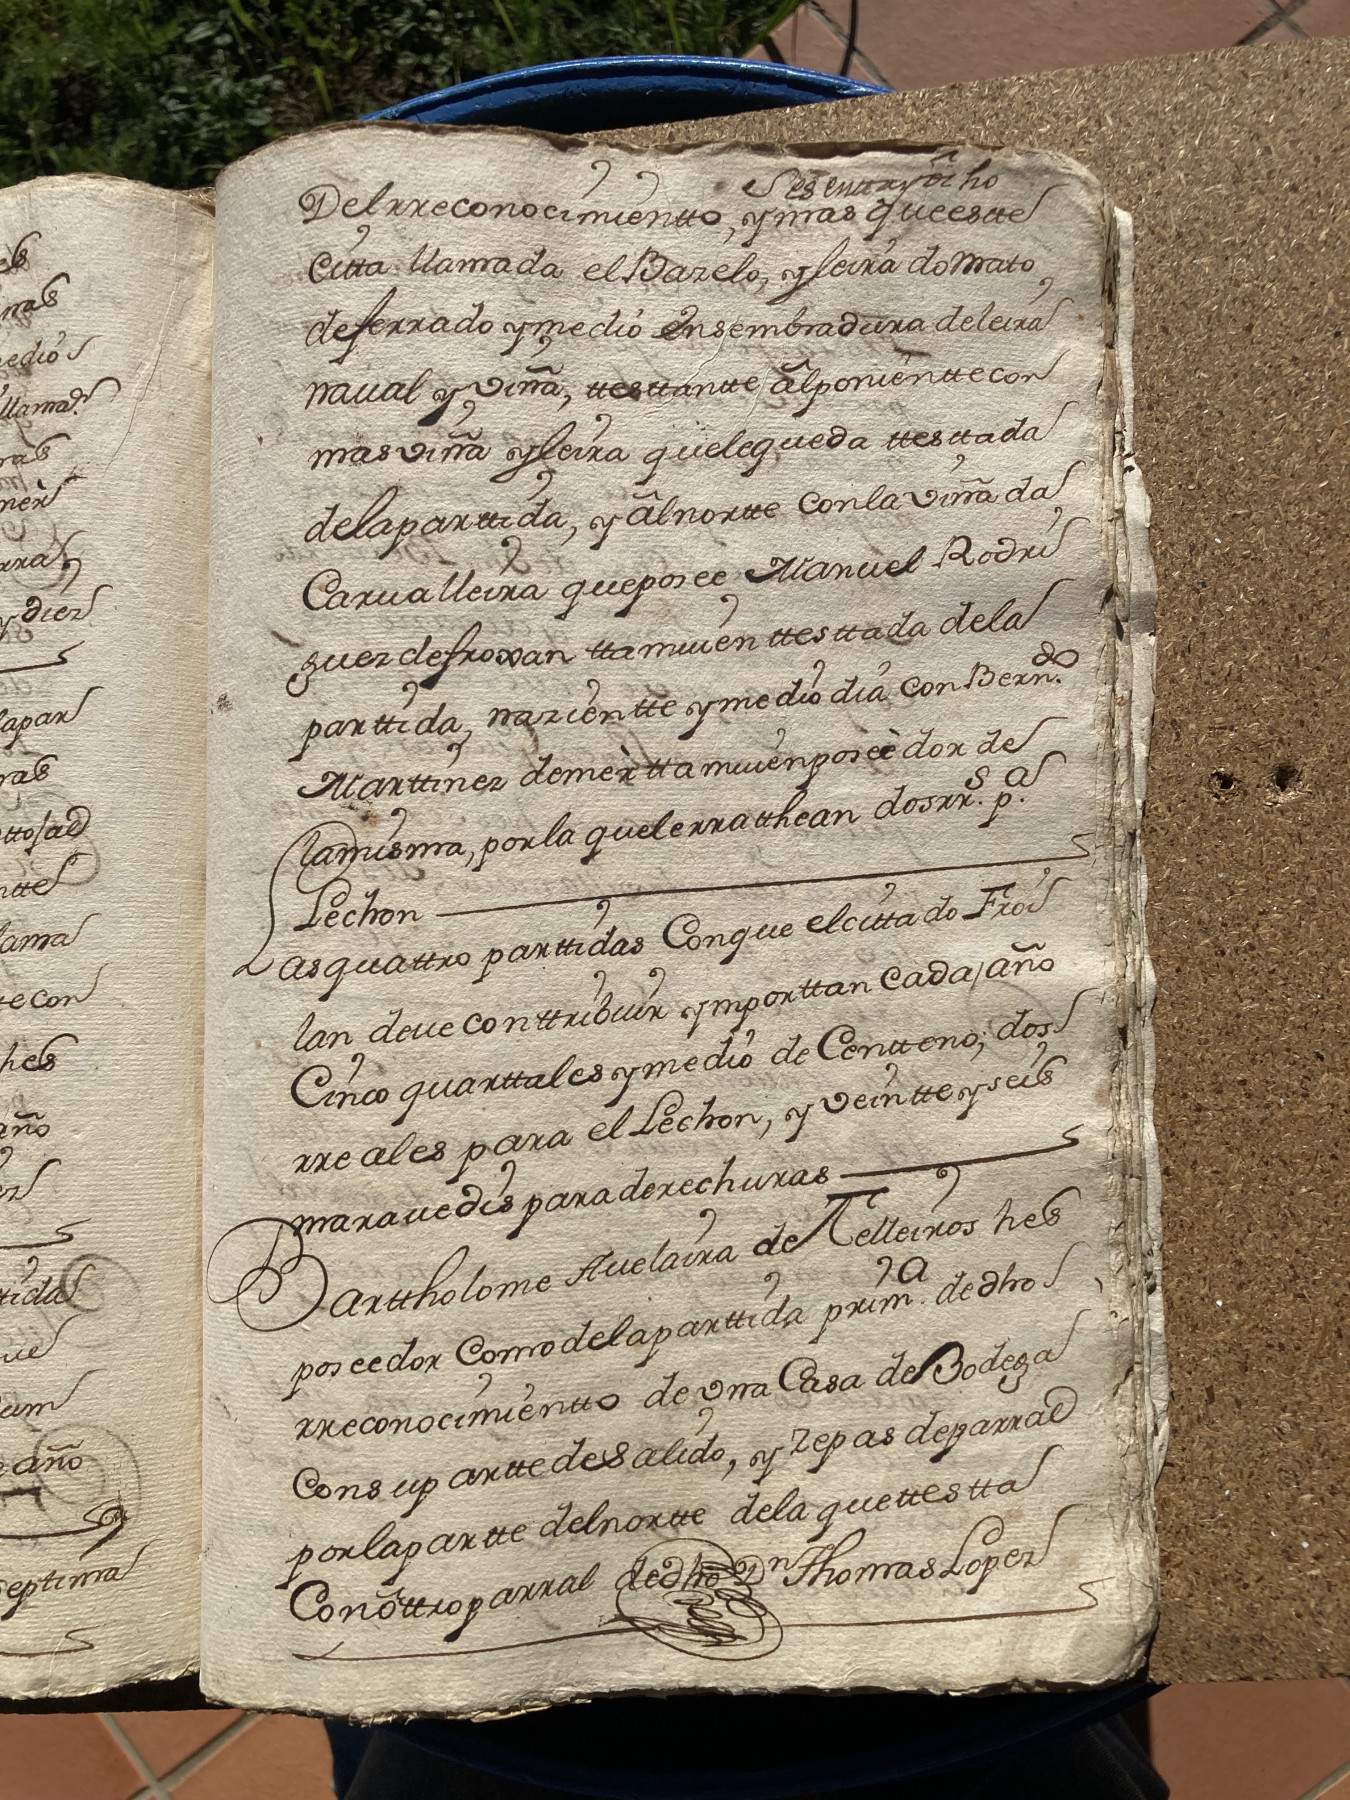 es
mas
medio
llamad.ª
ras
mer
rra
y diez
lapar
ras
tto
ntte
lama
te con
hes
año
ez
ttida
ue
um
año
septima
Sesenta y ocho
Del rreconocimientto, y mas que estte
Citta llamada el Bazelo, y leira do Mato
de ferrado y medio en sembradura de leira
naual y viña, ttesttantte ãl ponientte con
mas viña y leira que le queda ttesttada
de la parttida, y ãl nortte con la viña da
Carualleira que posee Manuel Rodri
guez de froxan ttamuien ttesttada de la
parttida, nazientte y medio dia con Bern.do
Marttinez de mer ttamuien poseedor de
la misma, por la que le rratthean dos rr.s p.a
Lechon
Las quattro parttidas Con que el cittado Froi
lan deue conttribuir ymporttan Cada año
Cinco quarttales y medio de Centteno; dos
rreales para el Lechon, y veintte y seis
marauedis para derechuras
Barttholome Auelaira de Telleiros hes
poseedor Como de la parttida prim.a de dho
rreconocimientto de vna Casa de Bodega
Con su partte de salido, y zepas de parral
por la partte del nortte de la que ttestta
Con ottro parral de dho Dn Thomas Lopez